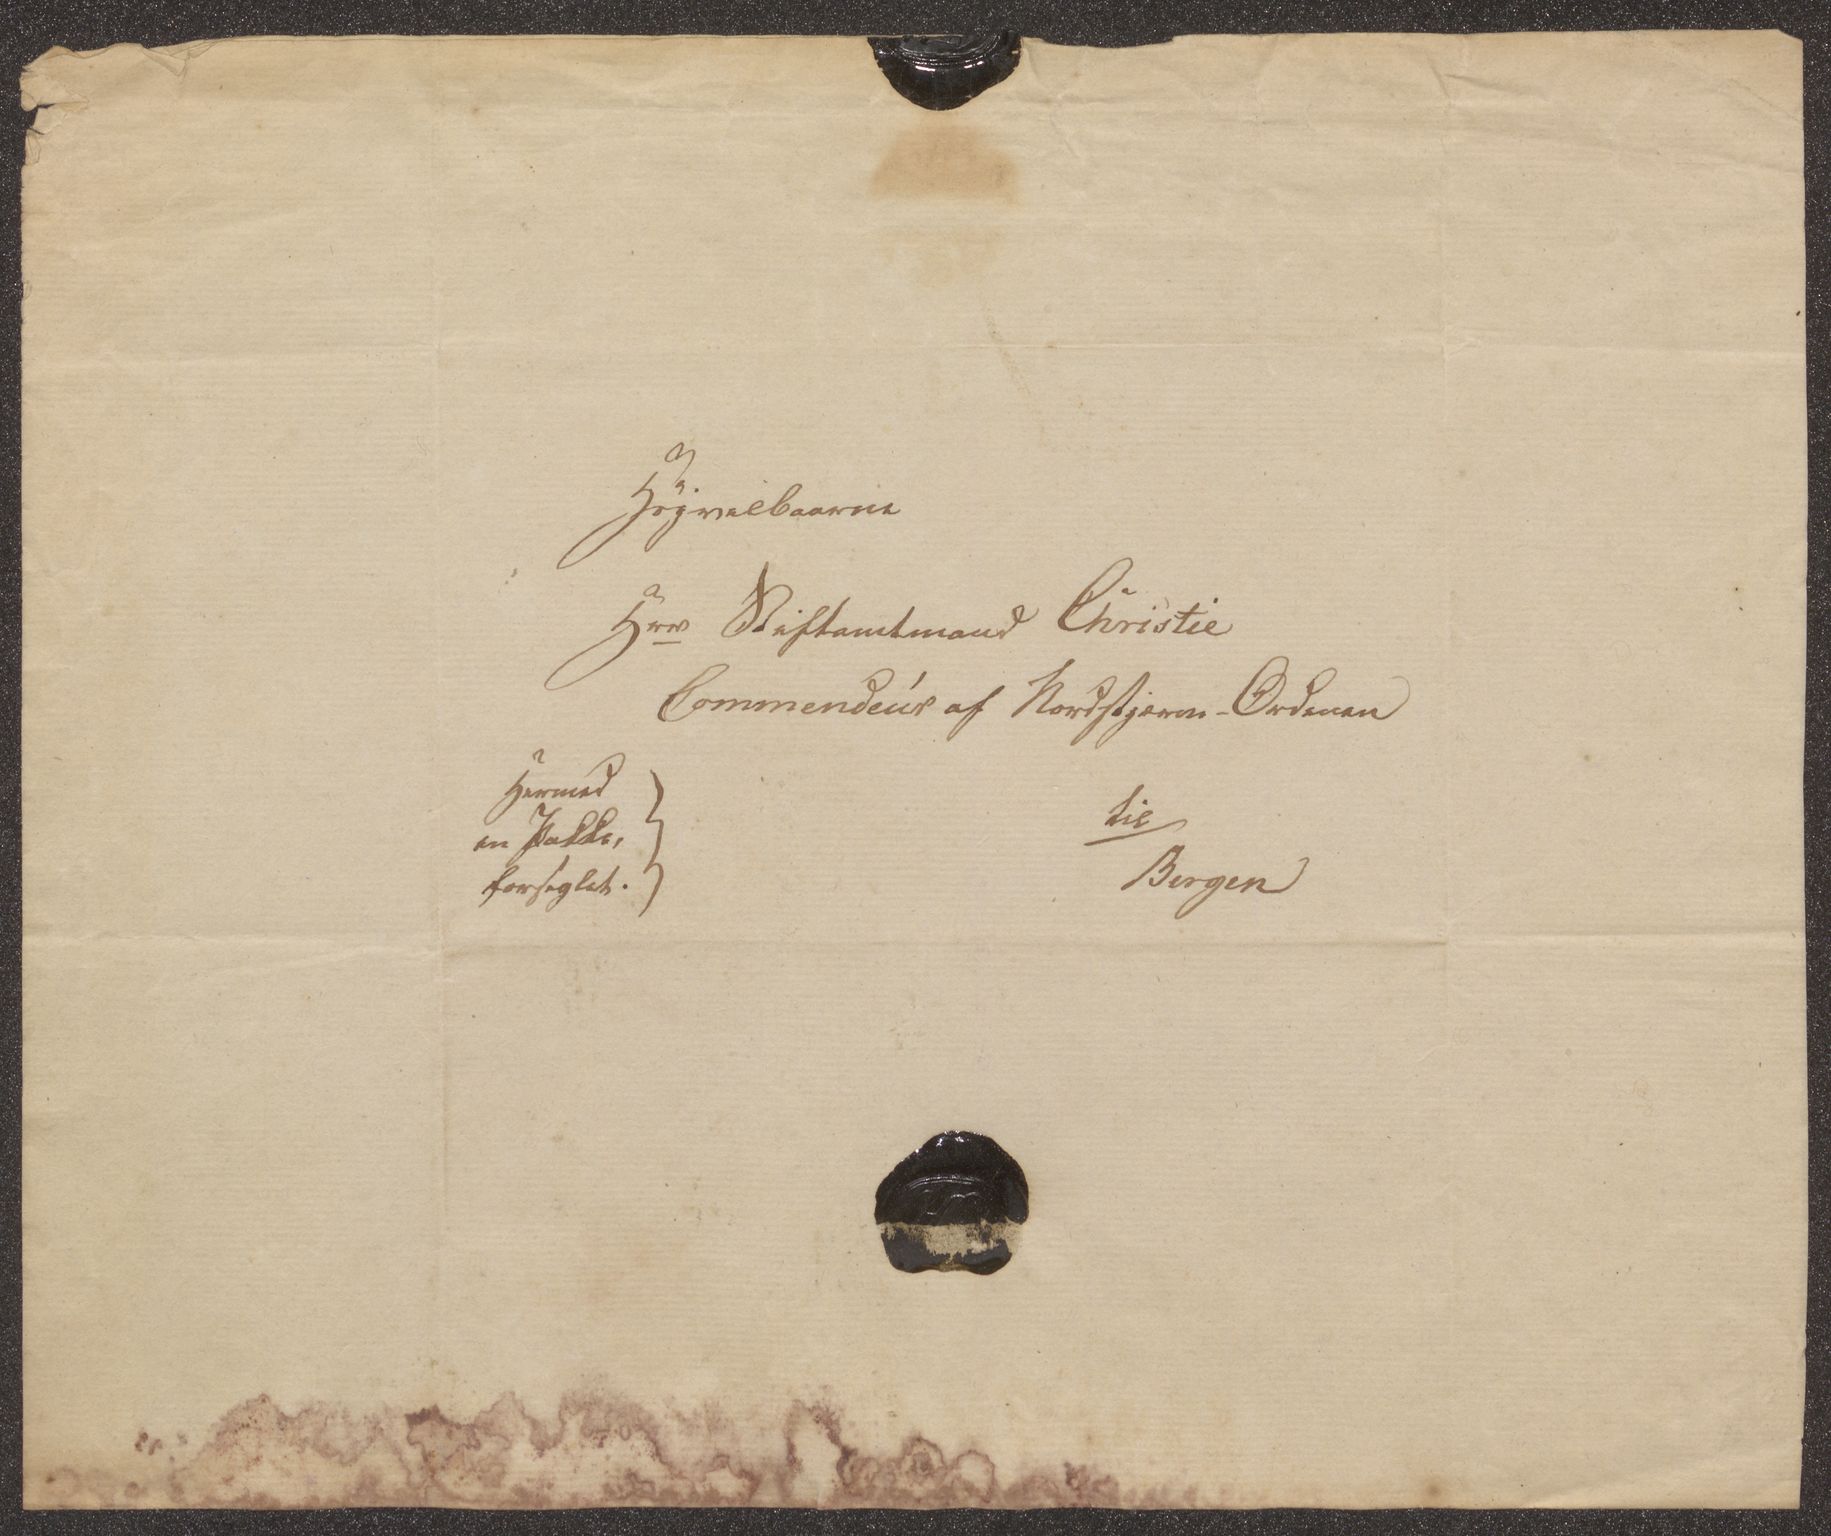 Høgvelbaarne
Herr Stiftamtmand Christie
Commendeur af Nordstjerne-Ordenen
Hermed
en Pakke,
forseglet.
til
Bergen